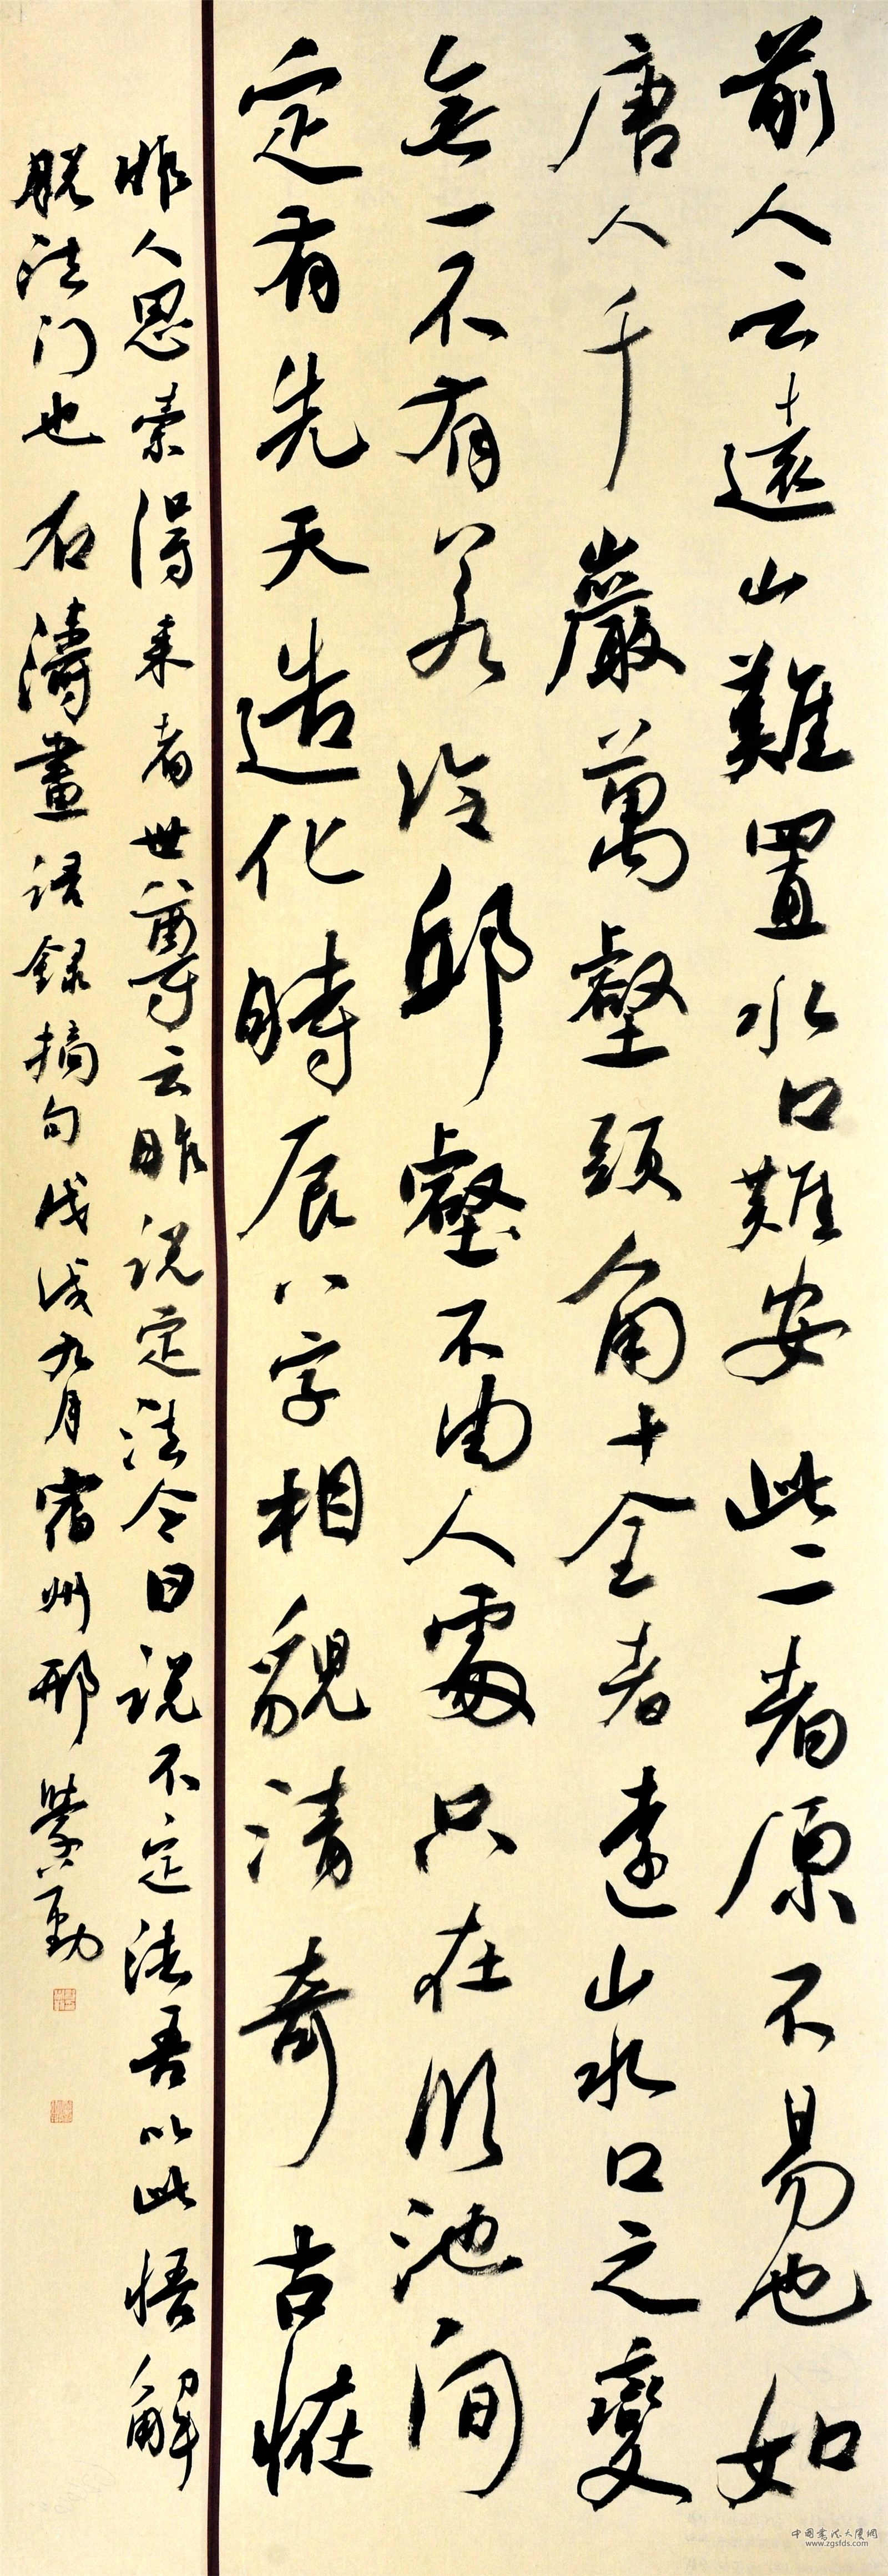 前人云遠山難置水口難安此二者原不易也如
唐人千巖萬壑頭角十全者遠山水口之變
無一不有若邱壑不由人處只在臨池間
定有先天造化時辰八字相貌清奇古恠
昨人思索得来者世尊云昨説定法今日説不定法吾以此悟解
脱法门也石濤畫語録摘句戊戌九月宿州邢勤
www.zgsfds.com